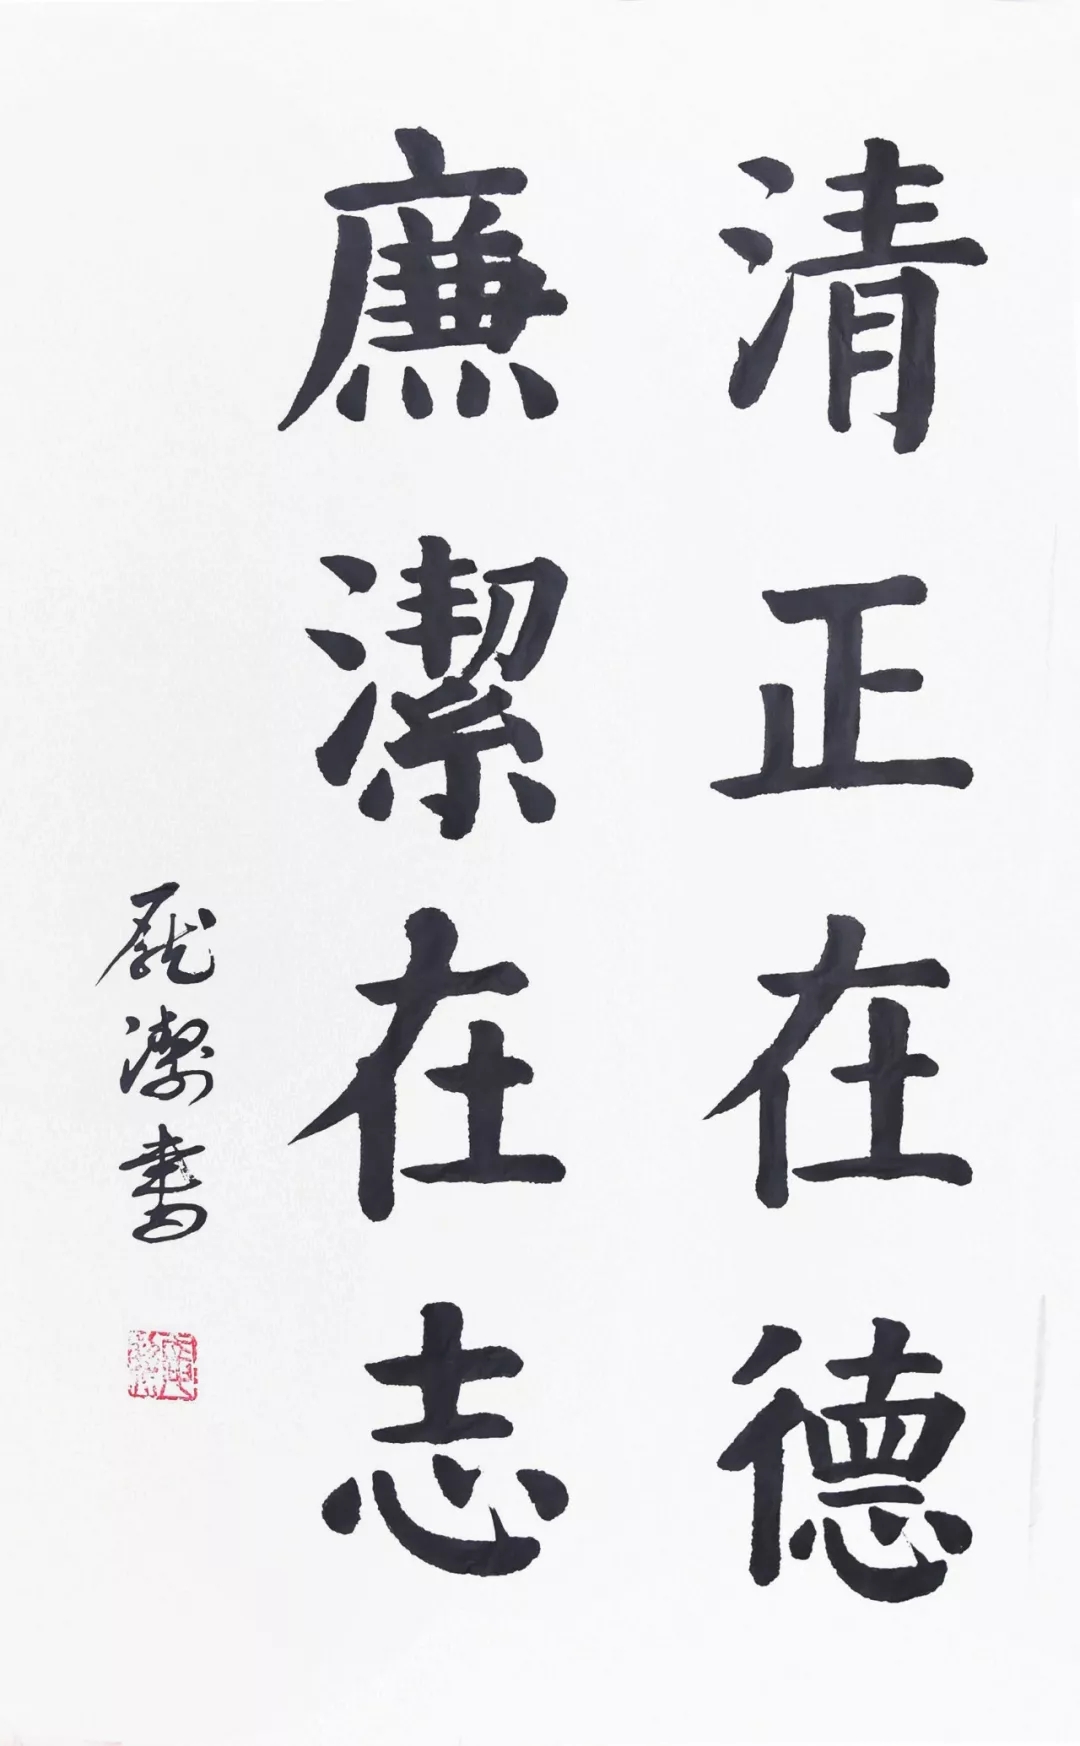 清正在德
廉潔在志
潔書